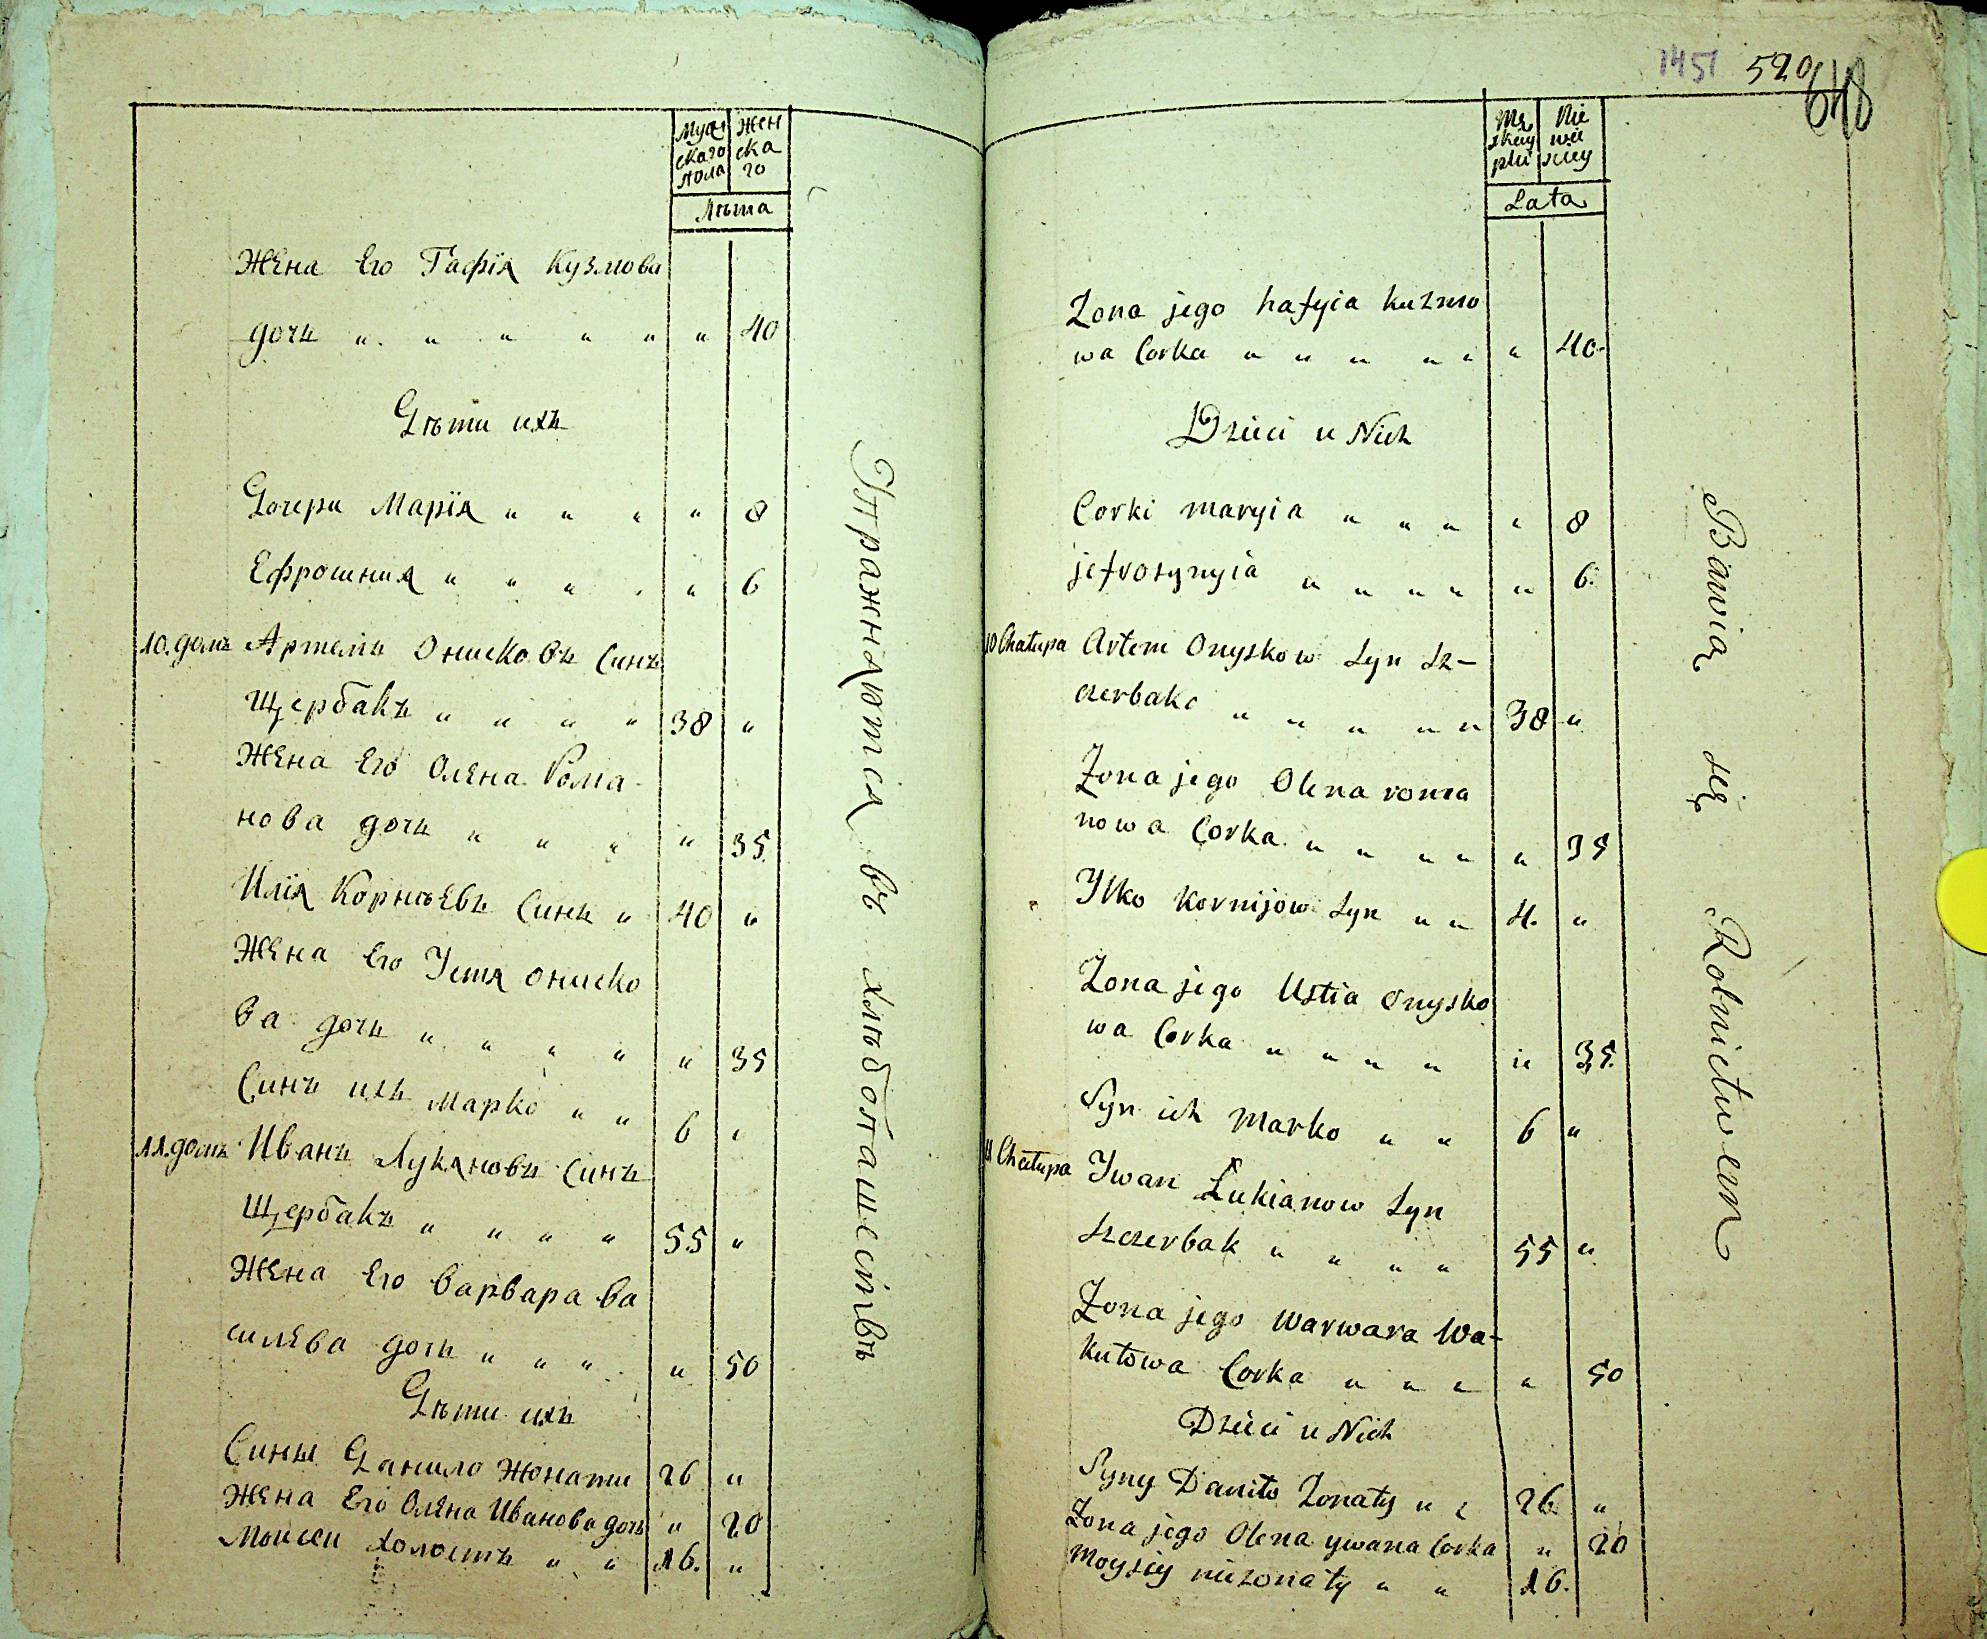 Мужскаго пола
Женскаго
Лѣта
Жена Его Гафія Кузмова
дочь " " " " " " 40
Дѣти ихъ
Дочери Марія " " " " 8
Ефрошния " " " " " 6
10. домъ Артемъ Ониско въ Синъ
Щербакъ " " " " 38 "
Жена Его Олена Рома-
нова дочь " " " " 35
Илія Корнѣевъ Синъ " 40 "
Жена Его Устя Ониско
ва дочь " " " " " 35
Синъ ихъ Марко " " 6 "
11. домъ Иванъ Лукяновъ Синъ
Щербакъ " " " " 55 "
Жена Его Варвара Ва
силева дочь " " " " 50
Дѣти ихъ
Сины Данило Жонати 26 "
Жена Его Олена Иванова дочь " 20
Моисеи холостъ " " 16. "
Упражняютса въ хлѣбопашествѣ
1451 520 648
Lata
Zona jego hafyia kuzmo
wa Corka " " " " " " 40.
Dzieci u Nich
Corki maryia " " " " 8
jefrosynyia " " " " " 6.
10 Chałupa Artem Onyskow Syn Sz-
" " " " " 38 "
Zona jego Olena roma
nowa Corka " " " " " 35
Ilko Kornijow Syn " " 4. "
Zona jego Ustia Onysko
wa Corka " " " " " 35.
Syn ich Marko " " 6 "
11 Chałupa Iwan Łukianow Syn
Szczerbak " " " " 55 "
Zona jego Warwara Wa-
kułowa Corka " " " " 50
Dzieci u Nich
Syny Daniło Zonaty " " 26. "
Zona jego Olena ywana Corka " 20
Moysiy niezonaty " " 16.
Bawią się Rolnictwem